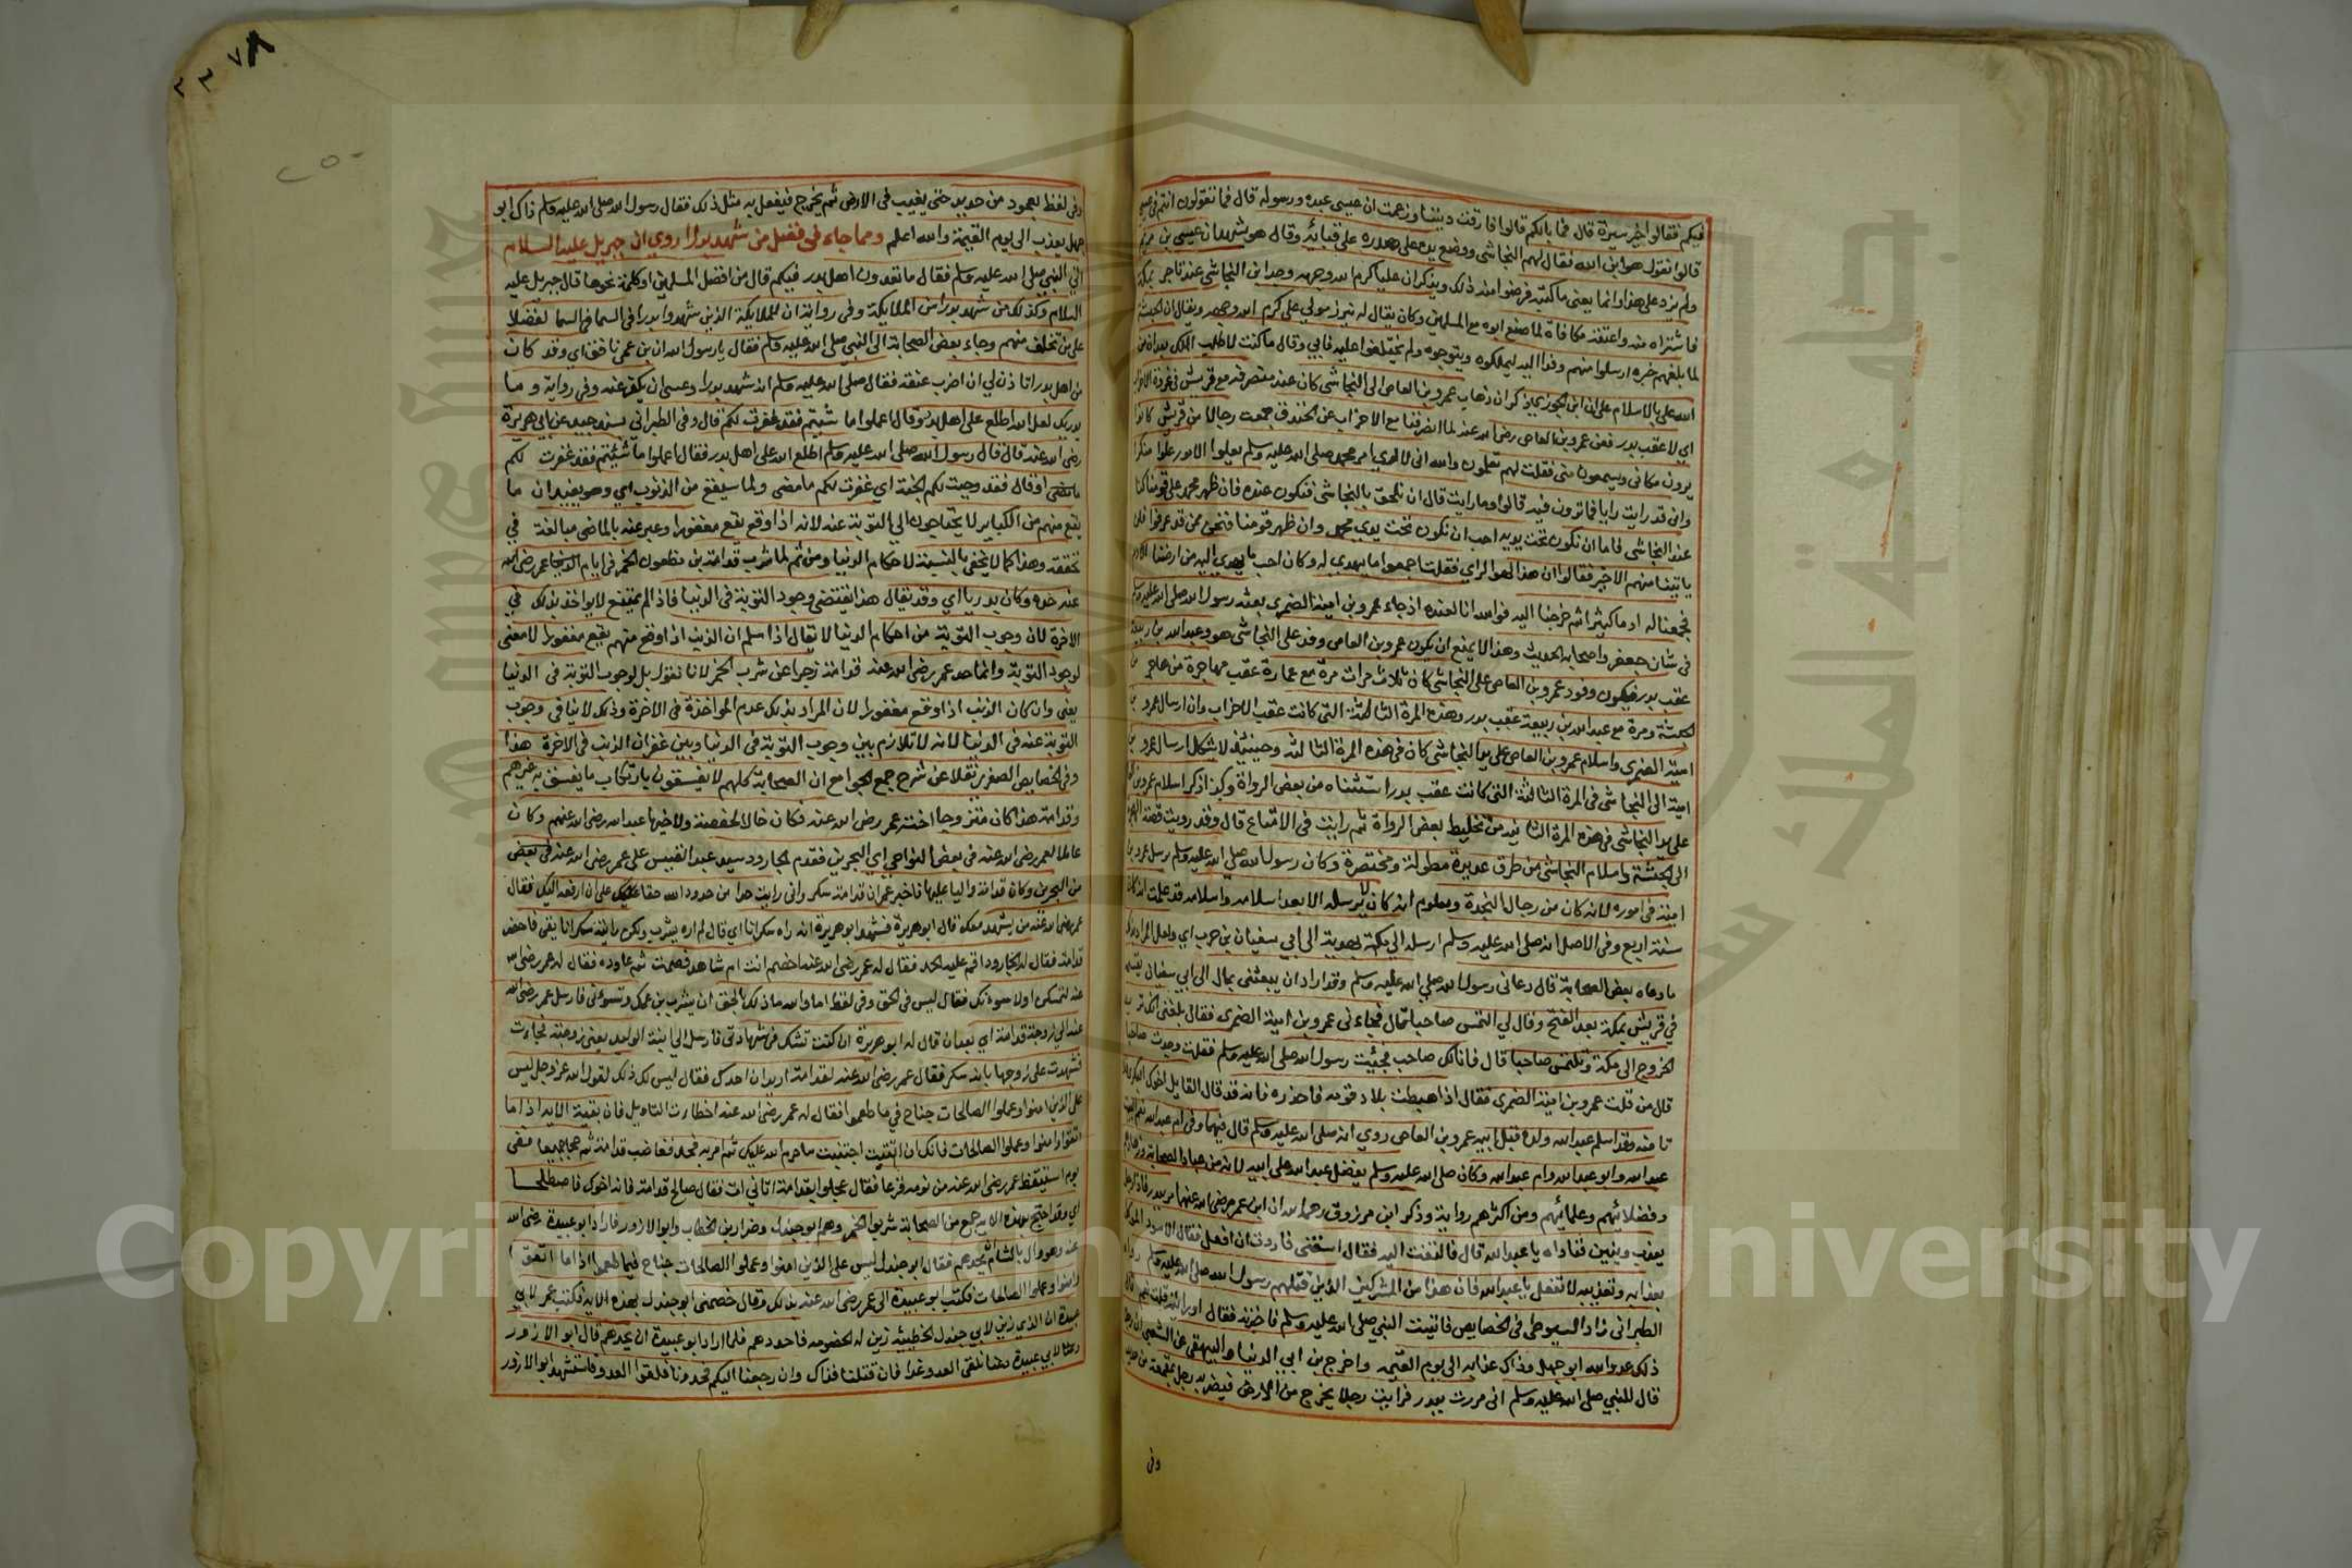 فيكم فقالوا خير سيرة قال فما بالكم قالوا فارقت ديننا وزعمت ان عيسى عبده ورسوله قال فما تقولون انتم في عيسى
قالوا نقول هو ابن الله فقال لهم النجاشي ووضع يده على صدره على قبائه وقال هو يشهد ان عيسى بن مريم
ولم يزد على هذا وانما يعني ما كتبه فرضوا منه ذلك ويذكر ان عليا كرم الله وجهه وجد ابن النجاشي عند تاجر بمكة
فاشتراه منه واعتقه مكافاة لما صنع ابوه مع المسلمين وكان يقال له نيرز مولي علي كرم الله وجهه ويقال ان الحبشة
لما بلغهم خبره ارسلوا منهم وفدا اليه ليملكوه ويتوجوه ولم يختلفوا عليه فابي وقال ما كنت لاطلب الملك بعد ان من
الله علي بالاسلام على ان ابن الجوزي ذكر ان ذهاب عمرو بن العاص الى النجاشي كان عند منصرفه مع قريش في غزوة الاحزاب
اي لا عقب بدر فعن عمرو بن العاص رضي الله عنه لما انصرفنا مع الاحزاب عن الخندق جمعت رجالا من قريش كانوا
يرون مكاني ويسمعون مني فقلت لهم تعلمون والله اني لا اري امر محمد صلى الله عليه وسلم يعلوا الامور علوا منكرا
واني قد رايت رايا فما ترون فيه قالوا وما رايت قال ان نلحق بالنجاشي فنكون عنده فان ظهر محمد على قومنا كنا
عند النجاشي فاما ان نكون تحت يديه احب ان نكون تحت يدي محمد وان ظهر قومنا فنحن ممن قد عرفوا فلن
ياتينا منهم الاخير فقالوا ان هذا لهو الراي فقلت اجمعوا ما يهدي له وكان احب ما يهدي اليه من ارضنا الادم
فجمعنا له ادما كثيرا ثم خرجنا اليه فوالله انا لعنده اذ جاء عمرو بن امية الضمري بعثه رسول الله صلى الله عليه وسلم
في شان جعفر واصحابه الحديث وهذا لا يمنع ان يكون عمرو بن العاص وفد على النجاشي هو وعبد الله بن ربيعة
عقب بدر فيكون وفود عمرو بن العاص على النجاشي كان ثلاث مرات مرة مع عمارة عقب مهاجرة من هاجر من
الحبشة ومرة مع عبد الله بن ربيعة عقب بدر وهذه المرة الثالثة التي كانت عقب الاحزاب وان ارسال عمرو بن
امية الضمري واسلام عمرو بن العاص على يد النجاشي كان في هذه المرة الثالثة وحينئذ لا يشكل ارسال عمرو بن
امية الى النجاشي في المرة الثالثة التي كانت عقب بدر استثناه من بعض الرواة وكذا ذكر اسلام عمرو بن العاص
على يد النجاشي في هذه المرة الثانية من تخليط بعض الرواة ثم رايت في الامتاع قال وقد رويت قصة الهجرة
الى الحبشة واسلام النجاشي من طرق عديدة مطولة ومختصرة وكان رسول الله صلى الله عليه وسلم يرسل عمرو بن
امية في اموره لانه كان من رجال النجدة ومعلوم انه كان لا يرسله الا بعد اسلامه واسلامه قد علمت انه كان
سنة اربع وفي الاصل انه صلى الله عليه وسلم ارسله الي مكة بهدية الى ابي سفيان بن حرب اي ولعل المراد بذلك
ما رواه بعض الصحابة قال دعاني رسول الله صلى الله عليه وسلم وقد اراد ان يبعثني بمال الى ابي سفيان يقسمه
في قريش بمكة بعد الفتح وقال لي التمس صاحبا قال فجاءني عمرو بن امية الضمري فقال بلغني انك تريد
الخروج الى مكة وتلتمس صاحبا قال فانا لك صاحب فجئت رسول الله صلى الله عليه وسلم فقلت وجدت صاحبا
قال من قلت عمرو بن امية الضمري فقال اذا هبطت بلاد قومه فاحذره فانه قد قال القايل اخوك البكري ولا
تامنه وقد اسلم عبد الله ولده قبل ابيه عمرو بن العاص روي انه صلى الله عليه وسلم قال فيهما وفي ام عبد الله نعم البيت
عبد الله وابو عبد الله وام عبد الله وكان صلى الله عليه وسلم يفضل عبد الله على ابيه لانه من عباد الصحابة وزهادهم
وفضلائهم وعلمائهم ومن اكثرهم رواية وذكر ابن مرزوق رحمه الله ان ابن عمر رضي الله عنهما مر ببدر فاذا رجل
يعذب ويئن فناداه يا عبد الله قال فالتفت اليه فقال اسقني فاردت ان افعل فقال الاسود الموكل
بعذابه وتعذيبه لا تفعل يا عبد الله فان هذا من المشركين الذين قتلهم رسول الله صلى الله عليه وسلم رواه
الطبراني زاد السيوطي في الخصايص فاتيت النبي صلى الله عليه وسلم فاخبرته فقال او رايته قلت نعم قال
ذلك عدو الله ابو جهل وذاك عذابه الى يوم القيمة واخرج بن ابي الدنيا والبيهقي عن الشعبي ان رجلا
قال للنبي صلى الله عليه وسلم اني مررت ببدر فرايت رجلا يخرج من الارض فيضربه رجل بمقمعة من حديد
وفي
٢٣٧٨
٢٥٠
وفي لفظ بعمود من حديد حتى يغيب في الارض ثم يخرج فيفعل به مثل ذلك فقال رسول الله صلى الله عليه وسلم ذاك ابو
جهل يعذب الى يوم القيمة والله اعلم ومما جاء في فضل من شهد بدرا روي ان جبريل عليه السلام
اتى النبي صلى الله عليه وسلم فقال ما تعدون اهل بدر فيكم قال من افضل المسلمين او كلمة نحوها قال جبريل عليه
السلام وكذلك من شهد بدرا من الملايكة وفي رواية ان للملايكة الذين شهدوا بدرا في السما في السما لفضلا
على من تخلف منهم وجاء بعض الصحابة الى النبي صلى الله عليه وسلم فقال يا رسول الله ان بن عمي نافق اي وقد كان
من اهل بدر اتاذن لي ان اضرب عنقه فقال صلى الله عليه وسلم انه شهد بدرا وعسى ان يكفر عنه وفي رواية وما
يدريك لعل الله اطلع على اهل بدر وقال اعملوا ما شيتم فقد غفرت لكم قال وفي الطبراني بسند جيد عن ابي هريرة
رضي الله عنه قال قال رسول الله صلى الله عليه وسلم اطلع الله على اهل بدر فقال اعملوا ما شئتم فقد غفرت لكم
ما مضى او قال فقد وجبت لكم الجنة اي غفرت لكم ما مضى ولما سيقع من الذنوب اي وهو يفيد ان ما
يقع منهم من الكباير لا يحتاجون الي التوبة عنه لانه اذا وقع يقع مغفورا وعبر عنه بالماضي مبالغة في
تحققه وهذا كما لا يخفى بالنسبة لاحكام الدنيا ومن ثم لما شرب قدامة بن مظعون الخمر في ايام عمر رضي الله
عنه حده وكان بدريا اي وقد يقال هذا يقتضي وجود التوبة في الدنيا فاذا لم تقع لا يواخذ بذلك في
الاخرة لان وجوب التوبة من احكام الدنيا لا يقال اذا سلم ان الذنب اذا وقع منهم يقع مغفورا لا معنى
لوجود التوبة وانما حد عمر رضي الله عنه قدامة زجرا عن شرب الخمر لانا نقول بل لوجوب التوبة في الدنيا
يعني وان كان الذنب اذا وقع مغفورا لان المراد بذلك عدم المواخذة في الاخرة وذلك لا ينافي وجوب
التوبة عنه في الدنيا لانه لا تلازم بين وجوب التوبة في الدنيا وبين غفران الذنب في الاخرة هذا
وفي الخصايص الصغرى نقلا عن شرح جمع الجوامع ان الصحابة كلهم لا يفسقون بارتكاب ما يفسق به غيرهم
وقدامة هذا كان متزوجا اخت عمر رضي الله عنه فكان خالا لحفصة ولاخيها عبد الله رضي الله عنهم وكان
عاملا لعمر رضي الله عنه في بعض النواحي اي البحرين فقدم الجارود سيد عبد القيس على عمر رضي الله عنه في بعض
من البحرين وكان قدامة واليا عليها فاخبر عمر ان قدامة سكر واني رايت حدا من حدود الله حقا علي ان ارفعه اليك فقال
عمر رضي الله عنه من يشهد معك قال ابو هريرة فشهد ابو هريرة انه راه سكرانا اي قال لم اره يشرب ولكن رايته سكرانا يقي فاحضر
قدامة فقال له الجارود اقم عليه الحد فقال له عمر رضي الله عنه اخصم انت ام شاهد فصمت ثم عاوده فقال له عمر رضي الله
عنه لتمسكن او لاسوءنك فقال ليس في الحق وفي لفظ اما والله ما ذلك بالحق ان يشرب بن عمك وتسوءني فارسل عمر رضي الله
عنه الي زوجة قدامة اي بعد ان قال له ابو هريرة ان كنت تشك في شهادتي فارسل الي ابنة الوليد يعني زوجته فجاءت
فشهدت على زوجها بانه سكر فقال عمر رضي الله عنه لقدامة اريد ان احدك فقال ليس لك ذلك لقول الله عز وجل ليس
على الذين امنوا وعملوا الصالحات جناح فيما طعموا فقال له عمر رضي الله عنه اخطات التاويل فان بقية الاية اذا ما
اتقوا وامنوا وعملوا الصالحات فانك ان اتقيت اجتنبت ما حرم الله عليك ثم امر به فحد فغاضب قدامة ثم حجا جميعا فبقى
يوم استيقظ عمر رضي الله عنه من نومه فزعا فقال عجلوا بقدامة اتاني ات فقال صالح قدامة فانه اخوك فاصطلحا
اي وقد احتج بهذه الاية جمع من الصحابة شربوا الخمر وهم ابو جندل وضرار بن الخطاب وابو الازور فاراد ابو عبيدة رضي الله
عنه وهو وال بالشام يحدهم فقال ابو جندل ليس على الذين امنوا وعملوا الصالحات جناح فيما طعموا اذا ما اتقوا
وامنوا وعملوا الصالحات فكتب ابو عبيدة الى عمر رضي الله عنه بذلك وقال خصمني ابو جندل بهذه الاية فكتب عمر لابي
عبيدة ان الذي زين لابي جندل الخطيئة زين له الخصومة فاحددهم فلما اراد ابو عبيدة ان يحدهم قال ابو الازور
لابي عبيدة دعنا نلقى العدو غدا فان قتلنا فذاك وان رجعنا اليكم فحدونا فلقوا العدو فاستشهد ابو الازور
Copyright © King Saud University
جامعة الملك سعود